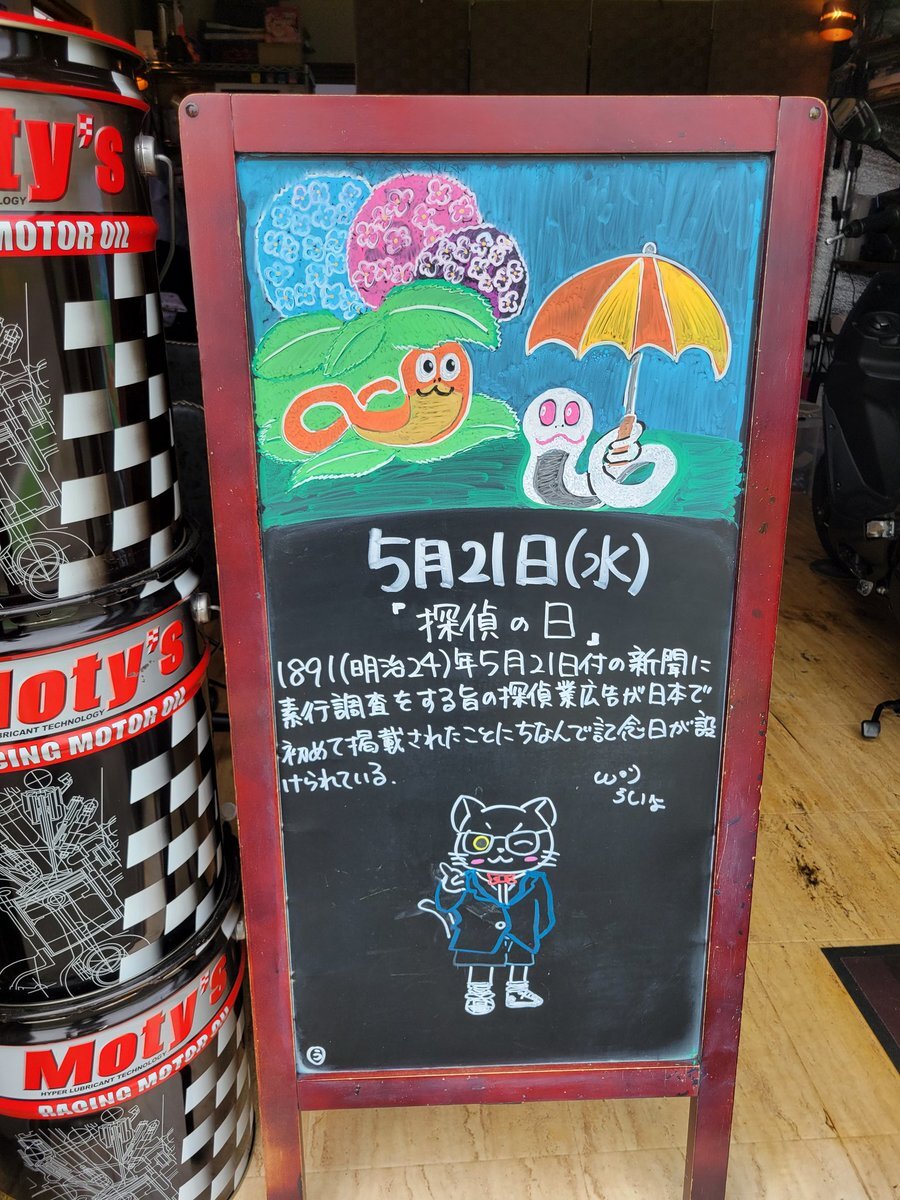 5月21日(水)
『探偵の日』
1891(明治24)年5月21日付の新聞に
素行調査をする旨の探偵業広告が日本で
初めて掲載されたことにちなんで記念日が設
けられている.
らしいよ
う
Moty's
TECHNOLOGY
MOTOR OIL
Moty's
LUBRICANT TECHNOLOGY
RACING MOTOR OIL
Moty's
HYPER LUBRICANT TECHNOLOGY
RACING MOTOR OIL